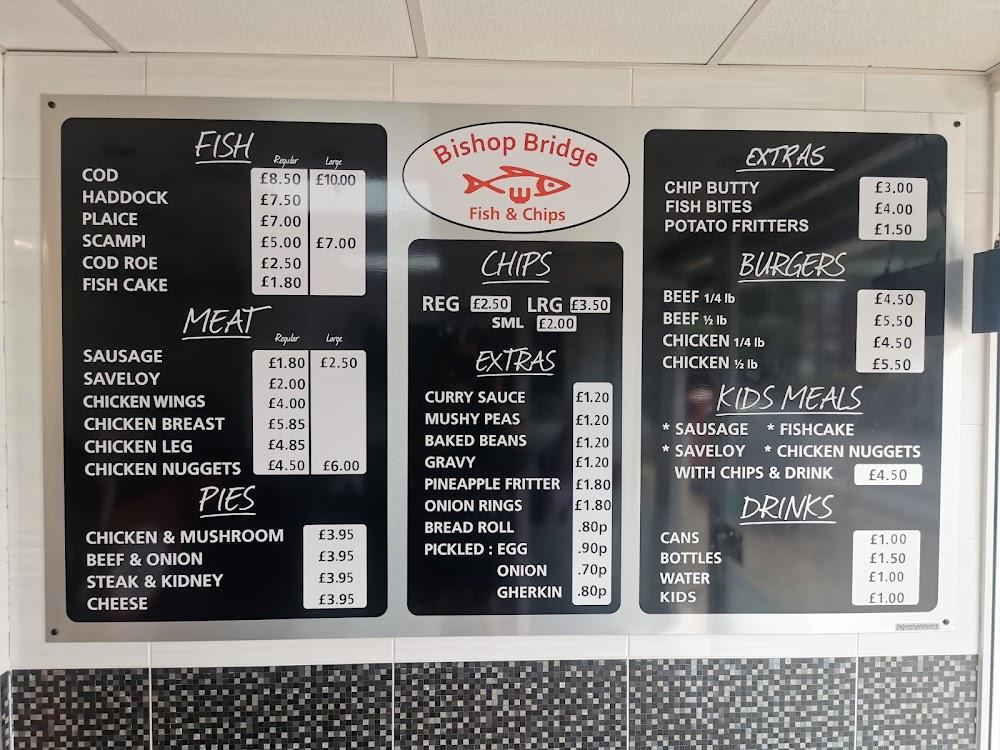 FISH
Regular Large
COD £8.50 £10.00
HADDOCK £7.50
PLAICE £7.00
SCAMPI £5.00 £7.00
COD ROE £2.50
FISH CAKE £1.80
MEAT
Regular Large
SAUSAGE £1.80 £2.50
SAVELOY £2.00
CHICKEN WINGS £4.00
CHICKEN BREAST £5.85
CHICKEN LEG £4.85
CHICKEN NUGGETS £4.50 £6.00
PIES
CHICKEN & MUSHROOM £3.95
BEEF & ONION £3.95
STEAK & KIDNEY £3.95
CHEESE £3.95
Bishop Bridge
Fish & Chips
CHIPS
REG £2.50 LRG £3.50
SML £2.00
EXTRAS
CURRY SAUCE £1.20
MUSHY PEAS £1.20
BAKED BEANS £1.20
GRAVY £1.20
PINEAPPLE FRITTER £1.80
ONION RINGS £1.80
BREAD ROLL .80p
PICKLED : EGG .90p
ONION .70p
GHERKIN .80p
EXTRAS
CHIP BUTTY £3.00
FISH BITES £4.00
POTATO FRITTERS £1.50
BURGERS
BEEF 1/4 lb £4.50
BEEF ½ lb £5.50
CHICKEN 1/4 lb £4.50
CHICKEN ½ lb £5.50
KIDS MEALS
* SAUSAGE * FISHCAKE
* SAVELOY * CHICKEN NUGGETS
WITH CHIPS & DRINK £4.50
DRINKS
CANS £1.00
BOTTLES £1.50
WATER £1.00
KIDS £1.00